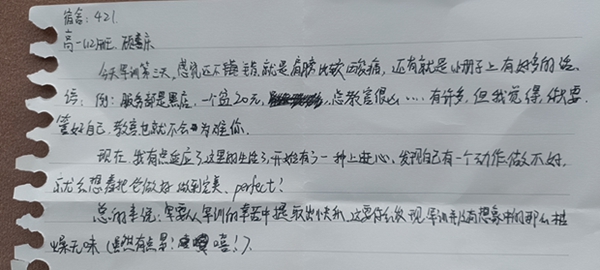 宿舍：421
高一(12)班
今天军训第三天，感觉还不错，就是肩膀比较酸痛，还有就是小册子上有好多的话。
例：服务部是黑店，一个盆20元，总教官很凶……有许多，但我觉得，只要
管好自己，教官也就不会为难你。
现在，我有点适应了这里的生活了，开始有了一种上进心，发现自己有一个动作做不好，
就会想着把它做好，做到完美，perfect！
总的来说：需要从军训的辛苦中提取出快乐，这要你们发现，军训并没有想象中的那么枯
燥无味（虽然有点累！嘻！）。